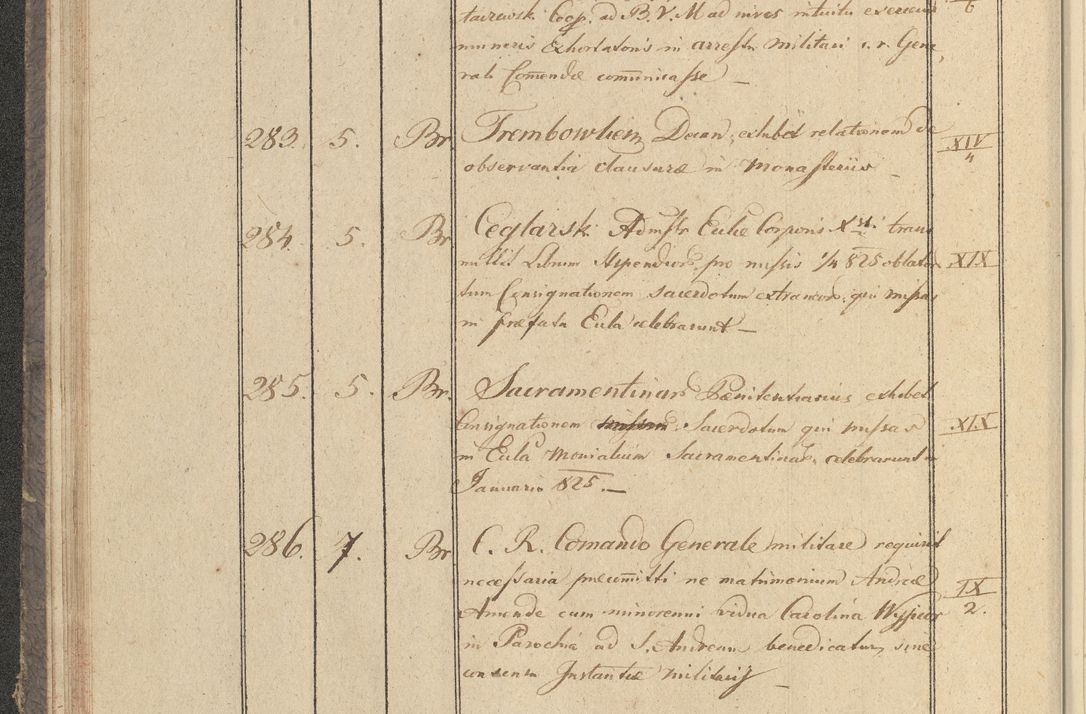 Coop. ad B. V. M ad nives intuitu 6
muneris Exhortatoris in arrestu militari c. r. Gene
rali Comendæ comunicasse _
283. 5. Br. Trembowliens Decan. exhibet relationem de XIV
observantia clausuræ in Monasteriis _ 4
284. 5. Br Ceglarski Admstr Eccliæ Corporis Xti trans
mittit Librum stipendior. pro missis 1/4 825 oblator XIX
tum Consignationem sacerdotum extraneor. qui missas
in præfata Eccla celebrarunt _
285. 5. Br. Sacramentinar Pænitentiarius exhibet
Consignationem Sacerdotum qui missas XIX
in Eccla Monialium Sacramentinar. celebrarunt in
Januario 825. _
286. 7. Br C. R. Comando Generale militare requirit
necessaria præmitti ne matrimonium Andreæ IX
Amende cum minorenni vidua Carolina 2.
in Parochia ad S. Andream benedicatur, sine
consensu Instantiæ militaris _